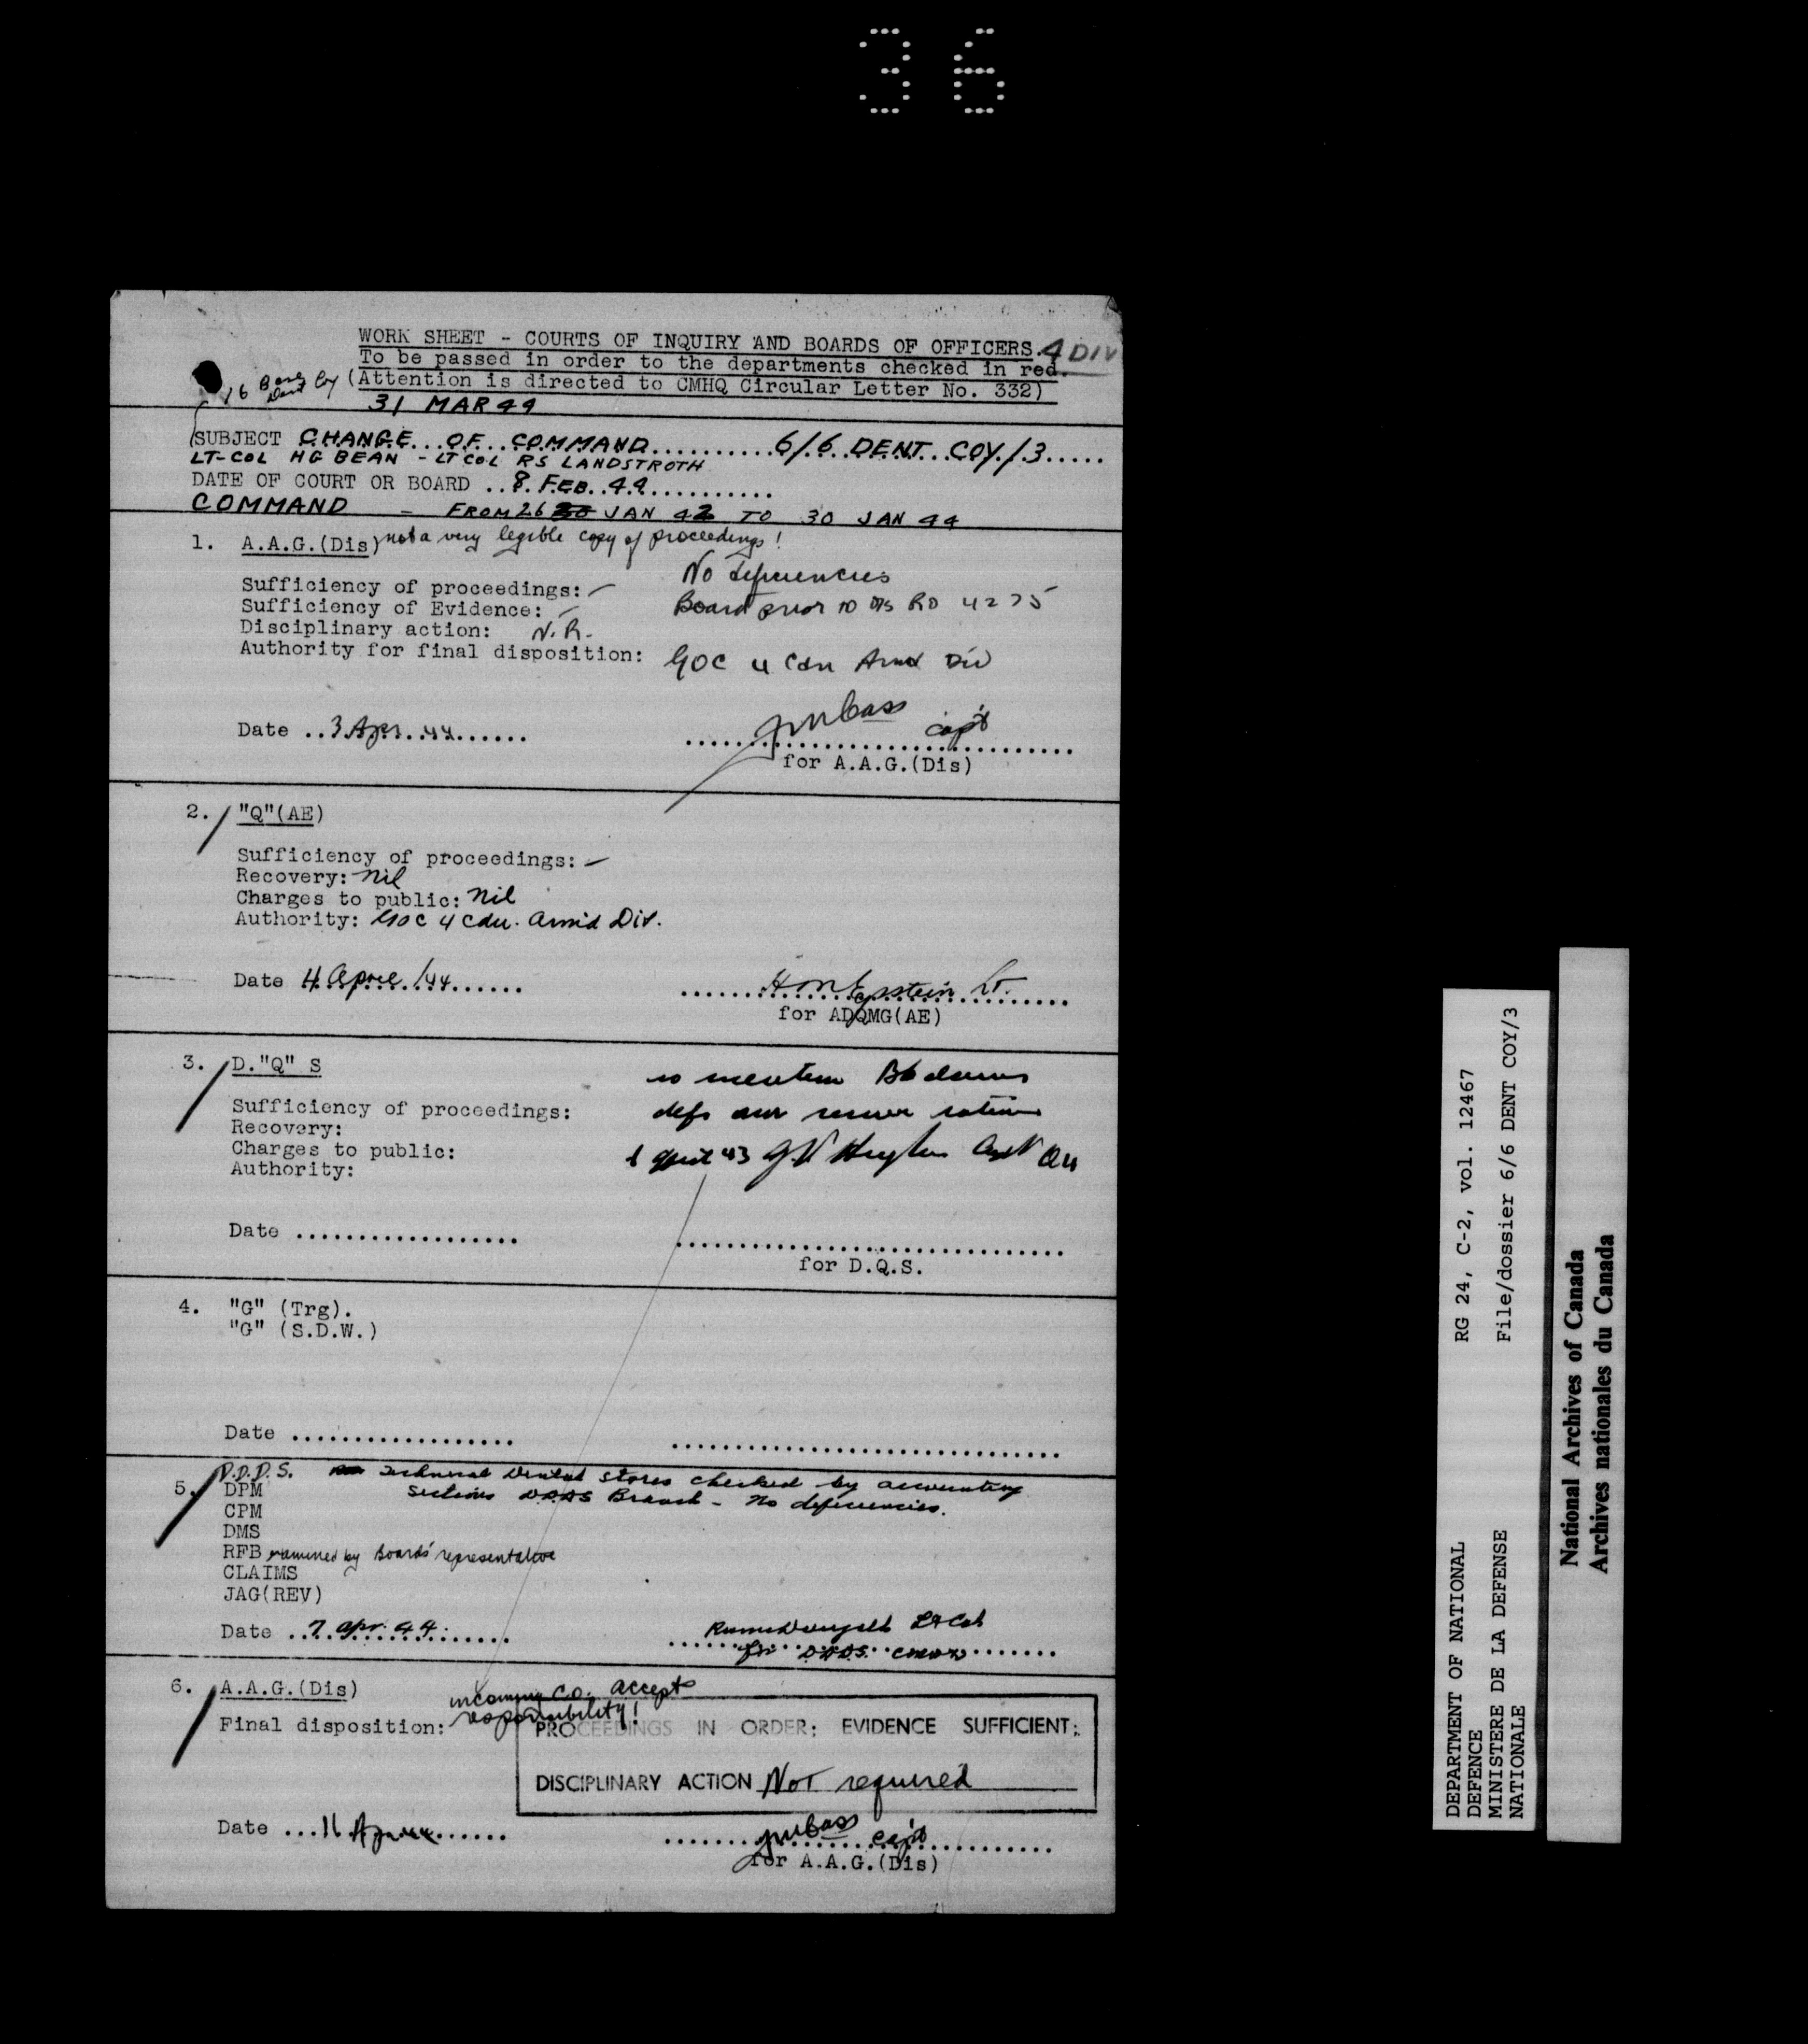 36
WORK SHEET - COURTS OF INQUIRY AND BOARDS OF OFFICERS. 4 DIV
To be passed in order to the departments checked in red.
(Attention is directed to CMHQ Circular Letter No. 332)
16 Base Dent Coy
31 MAR 44
SUBJECT CHANGE...OF...COMMAND..........6/6 DENT COY/3.....
LT-COL HG BEAN - LT COL RS LANDSTROTH
DATE OF COURT OR BOARD ..8.FEB..44...........
COMMAND - FROM 26 JAN 42 TO 30 JAN 44
1. A.A.G.(Dis) not a very legible copy of proceedings!
No deficiencies
Sufficiency of proceedings: -
Board prior to RO 4275
Sufficiency of Evidence: -
Disciplinary action: N.R.
Authority for final disposition: GOC 4 Cdn Armd Div
Date ..3.Apr..44......
Capt
for A.A.G.(Dis)
2. "Q"(AE)
Sufficiency of proceedings: -
Recovery: nil
Charges to public: nil
Authority: GOC 4 Cdn. Arm'd Div.
Date 4 April /44......
H M Epstein Lt.
for ADQMG(AE)
3. D."Q" S
Sufficiency of proceedings:
Recovery:
Charges to public:
Authority:
Date ..................
for D.Q.S.
4. "G" (Trg).
"G" (S.D.W.)
Date ..................
D.D.D.S. Technical Dental stores checked by accounting
5. DPM
sections DDDS Branch - No deficiencies.
CPM
DMS
RFB examined by Boards' representative
CLAIMS
JAG(REV)
Date ..7 Apr. 44.......
Lt Col
for
6. A.A.G.(Dis)
incoming CO. accepts
responsibility!
Final disposition:
PROCEEDINGS IN ORDER; EVIDENCE SUFFICIENT;
DISCIPLINARY ACTION Not required
Date ...11 Apr 44......
Capt
for A.A.G.(Dis)
DEPARTMENT OF NATIONAL
DEFENCE
MINISTERE DE LA DEFENSE
NATIONALE
RG 24, C-2, vol. 12467
File/dossier 6/6 DENT COY/3
National Archives of Canada
Archives nationales du Canada